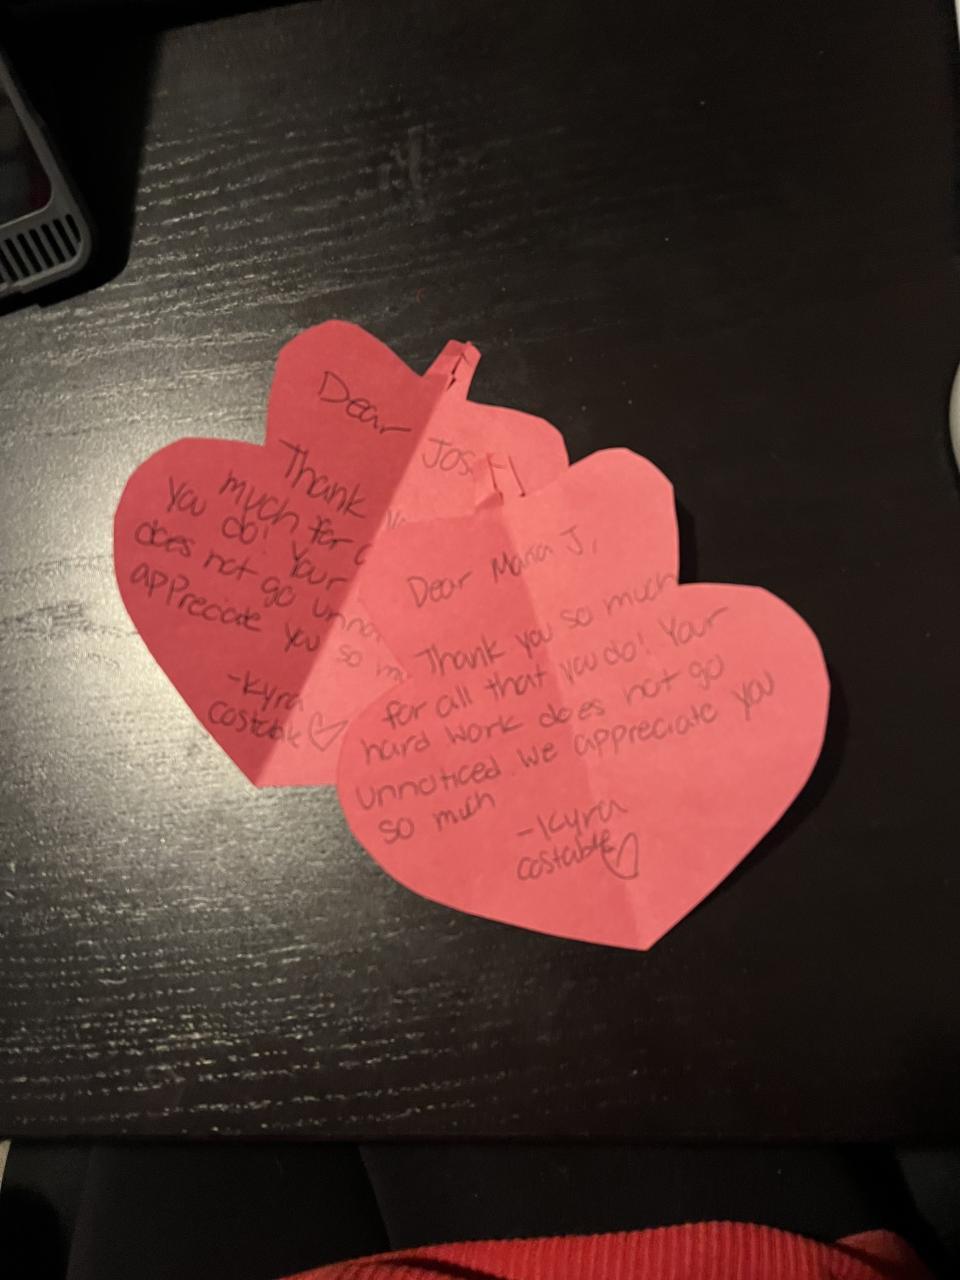 Dear Jos
Thank
much for
you do! Your
does not go
appreciate you so
-Kyra
costable
Dear Maria J,
Thank you so much
for all that you do! Your
hard work does not go
unnoticed we appreciate you
so much
-Kyra
costable